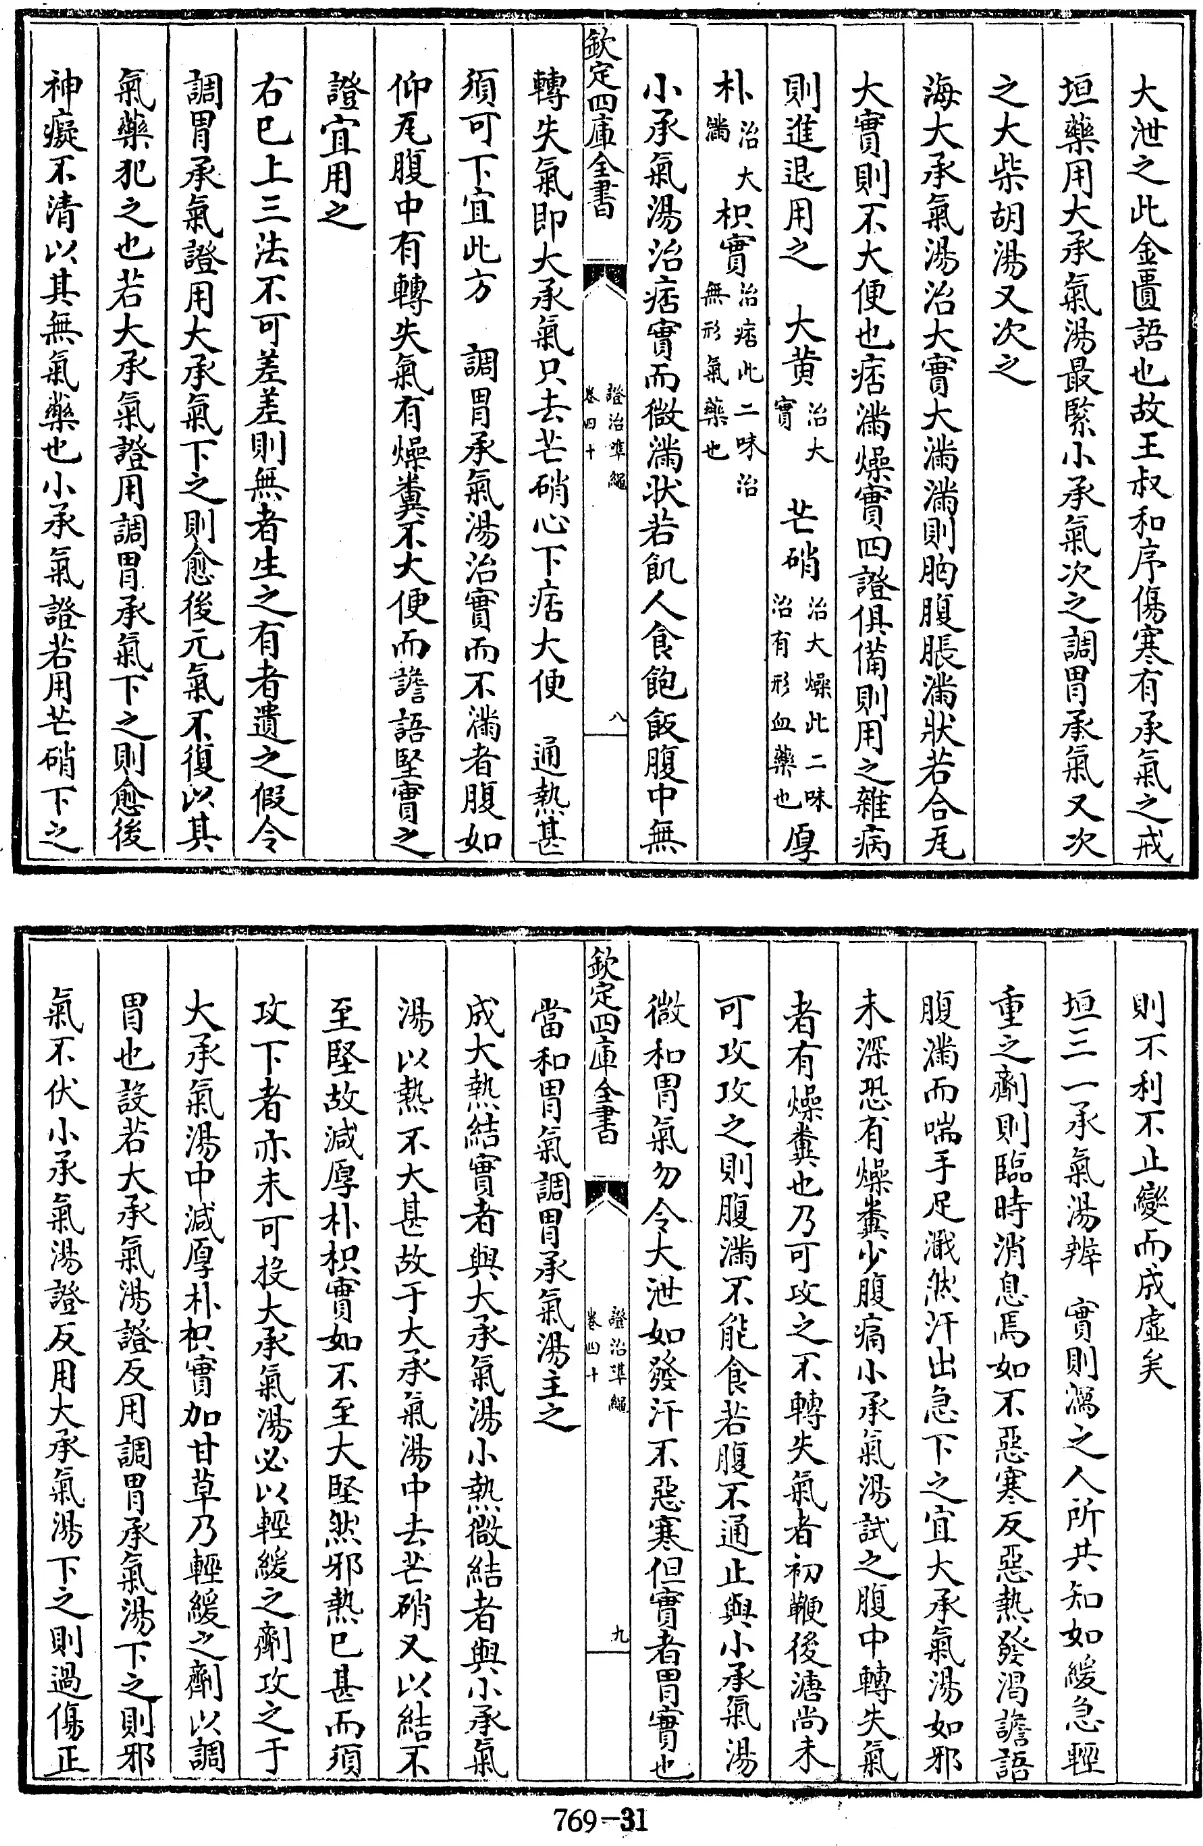 大泄之此金匱語也故王叔和序傷寒有承氣之戒
垣藥用大承氣湯最緊小承氣次之調胃承氣又次
之大柴胡湯又次之
海大承氣湯治大實大滿滿則胸腹脹滿狀若合瓦
大實則不大便也痞滿燥實四證俱備則用之雜病
則進退用之　大黄治大實　芒硝治大燥此二味治有形血藥也厚
朴治大滿　枳實治痞此二味治無形氣藥也
小承氣湯治痞實而微滿狀若飢人食飽飯腹中無
欽定四庫全書　證治準繩　卷四十　八
轉失氣即大承氣只去芒硝心下痞大便　通熱甚
須可下宜此方　調胃承氣湯治實而不滿者腹如
仰瓦腹中有轉失氣有燥糞不大便而譫語堅實之
證宜用之
右已上三法不可差差則無者生之有者遺之假令
調胃承氣證用大承氣下之則愈後元氣不復以其
氣藥犯之也若大承氣證用調胃承氣下之則愈後
神癡不清以其無氣藥也小承氣證若用芒硝下之
則不利不止變而成虛矣
垣三一承氣湯辨　實則瀉之人所共知如緩急輕
重之劑則臨時消息焉如不惡寒反惡熱發渴譫語
腹滿而喘手足濈然汗出急下之宜大承氣湯如邪
未深恐有燥糞少腹痛小承氣湯試之腹中轉失氣
者有燥糞也乃可攻之不轉失氣者初鞕後溏尚未
可攻攻之則腹滿不能食若腹不通止與小承氣湯
微和胃氣勿令大泄如發汗不惡寒但實者胃實也
欽定四庫全書　證治準繩　卷四十　九
當和胃氣調胃承氣湯主之
成大熱結實者與大承氣湯小熱微結者與小承氣
湯以熱不大甚故于大承氣湯中去芒硝又以結不
至堅故減厚朴枳實如不至大堅然邪熱已甚而須
攻下者亦未可投大承氣湯必以輕緩之劑攻之于
大承氣湯中減厚朴枳實加甘草乃輕緩之劑以調
胃也設若大承氣湯證反用調胃承氣湯下之則邪
氣不伏小承氣湯證反用大承氣湯下之則過傷正
769-31